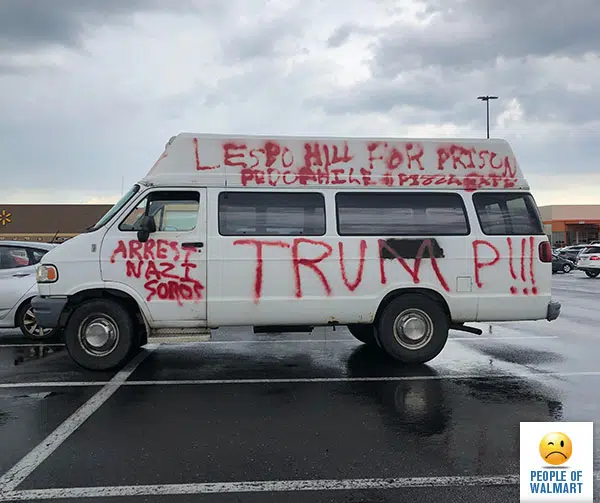 LESBO HILL FOR PRISON
PEDOPHILE PIZZAGATE
ARREST
NAZI
SOROS
TRUMP!!!
PEOPLE OF
WALMART